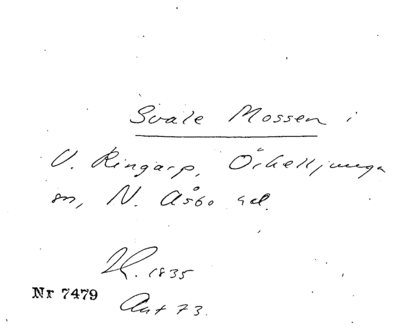 Svale Mossen i
V. Ringarp, Örkelljunga
sn, N. Åsbo hd.
H. 1835
Nr 7479
Ant 73.